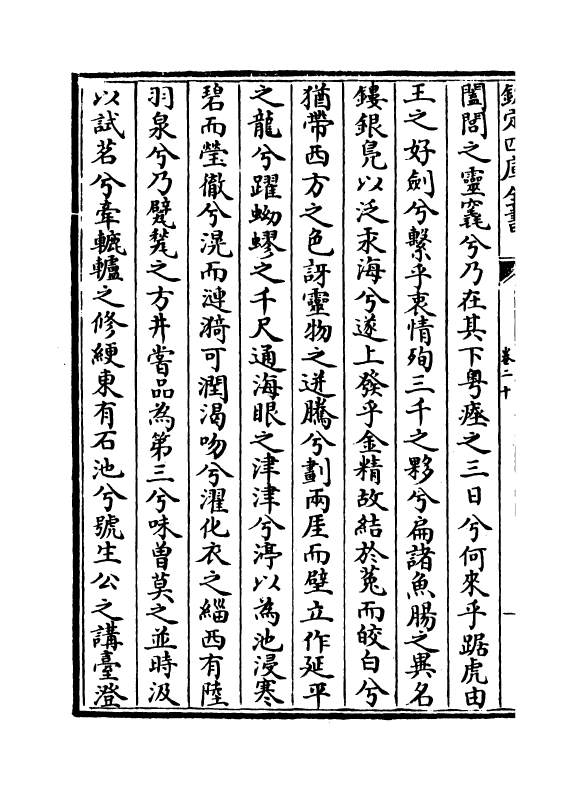 欽定四庫全書
卷二十
闔閭之靈窆兮乃在其下粵瘞之三日兮何來乎踞虎由
王之好劍兮繫乎衷情殉三千之夥兮扁諸魚腸之異名
鏤銀鳧以泛汞海兮遂上發乎金精故結於菟而皎白兮
猶帶西方之色訝靈物之迸騰兮劃兩厓而壁立作延平
之龍兮躍蚴蟉之千尺通海眼之津津兮渟以為池浸寒
碧而瑩徹兮滉而漣漪可潤渴吻兮濯化衣之緇西有陸
羽泉兮乃甃甃之方井嘗品為第三兮味曾莫之並時汲
以試茗兮牽轆轤之修綆東有石池兮號生公之講臺澄